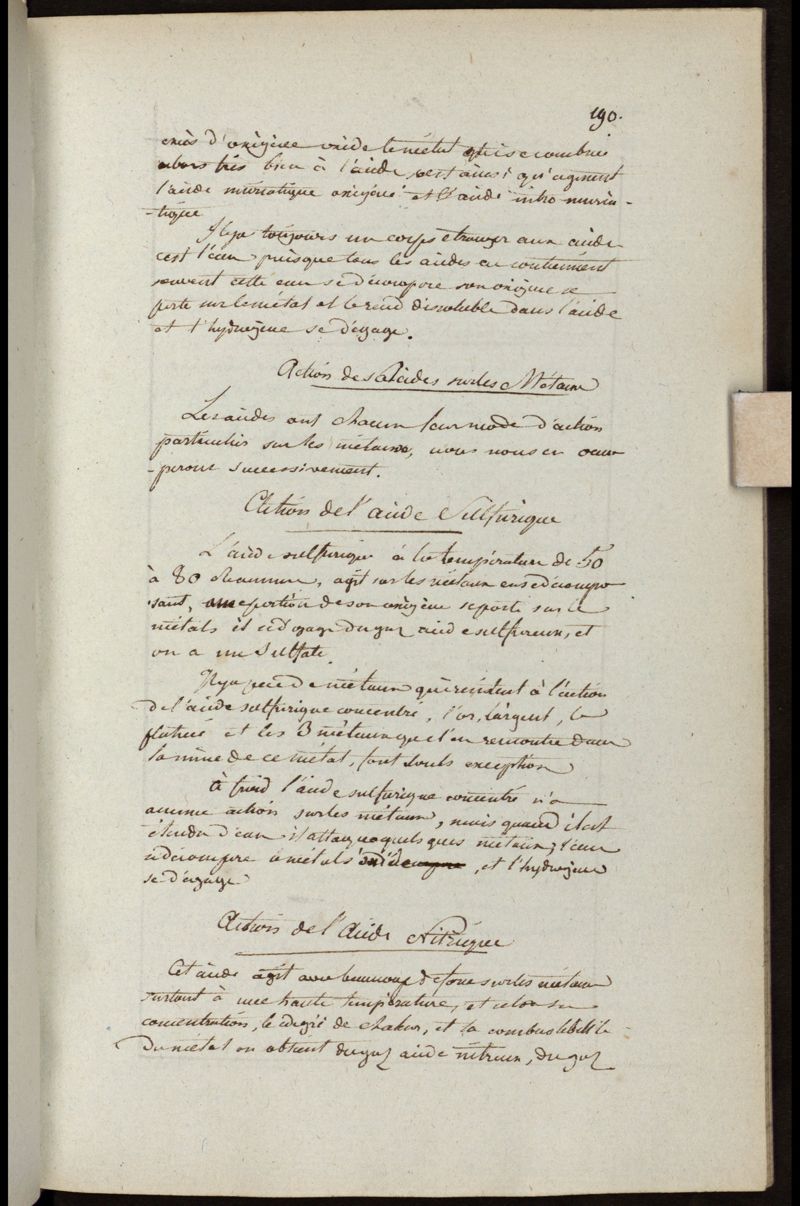 190.
excès d'oxigène oxide le métal qui se combine
alors très bien à l'acide, c'est ainsi qu'agissent
l'acide muriatique oxigené et l'acide nitro muria-
-tique
Il y a toujours un corps étranger aux acides
c'est l'eau puisque tous les acides en contiennent
souvent cette eau se décompose son oxigène se
porte sur le métal et le rend dissoluble dans l'acide
et l'hydrogène se dégage.
Action des Acides sur les Métaux
Les acides ont chacun leur mode d'action
particulier sur les métaux, nous nous en occu-
-perons successivement.
Action de l'acide Sulfurique
L'acide sulfurique à la température de 50
à 80 Reaumur, agit sur les métaux en se décompo
sant, une portion de son oxigène se porte sur le
métal il se dégage du gaz acide sulfureux, et
on a un Sulfate.
Il y a peu de métaux qui résistent à l'action
de l'acide sulfurique concentré, l'or, l'argent, le
platine et les 3 métaux que l'on rencontre dans
la mine de ce métal, font seuls exception
à froid l'acide sulfurique concentré n'a
aucune action sur les métaux, mais quand il est
étendu d'eau il attaque quelques métaux, l'eau
se décompose le métal s'oxide, et l'hydrogène
se dégage
Action de l'Acide Nitrique
Cet acide agit avec beaucoup de force sur les métaux
surtout à une haute température, et selon sa
concentration, le degré de chaleur, et la combustibilité
du métal on obtient du gaz acide nitreux, du gaz